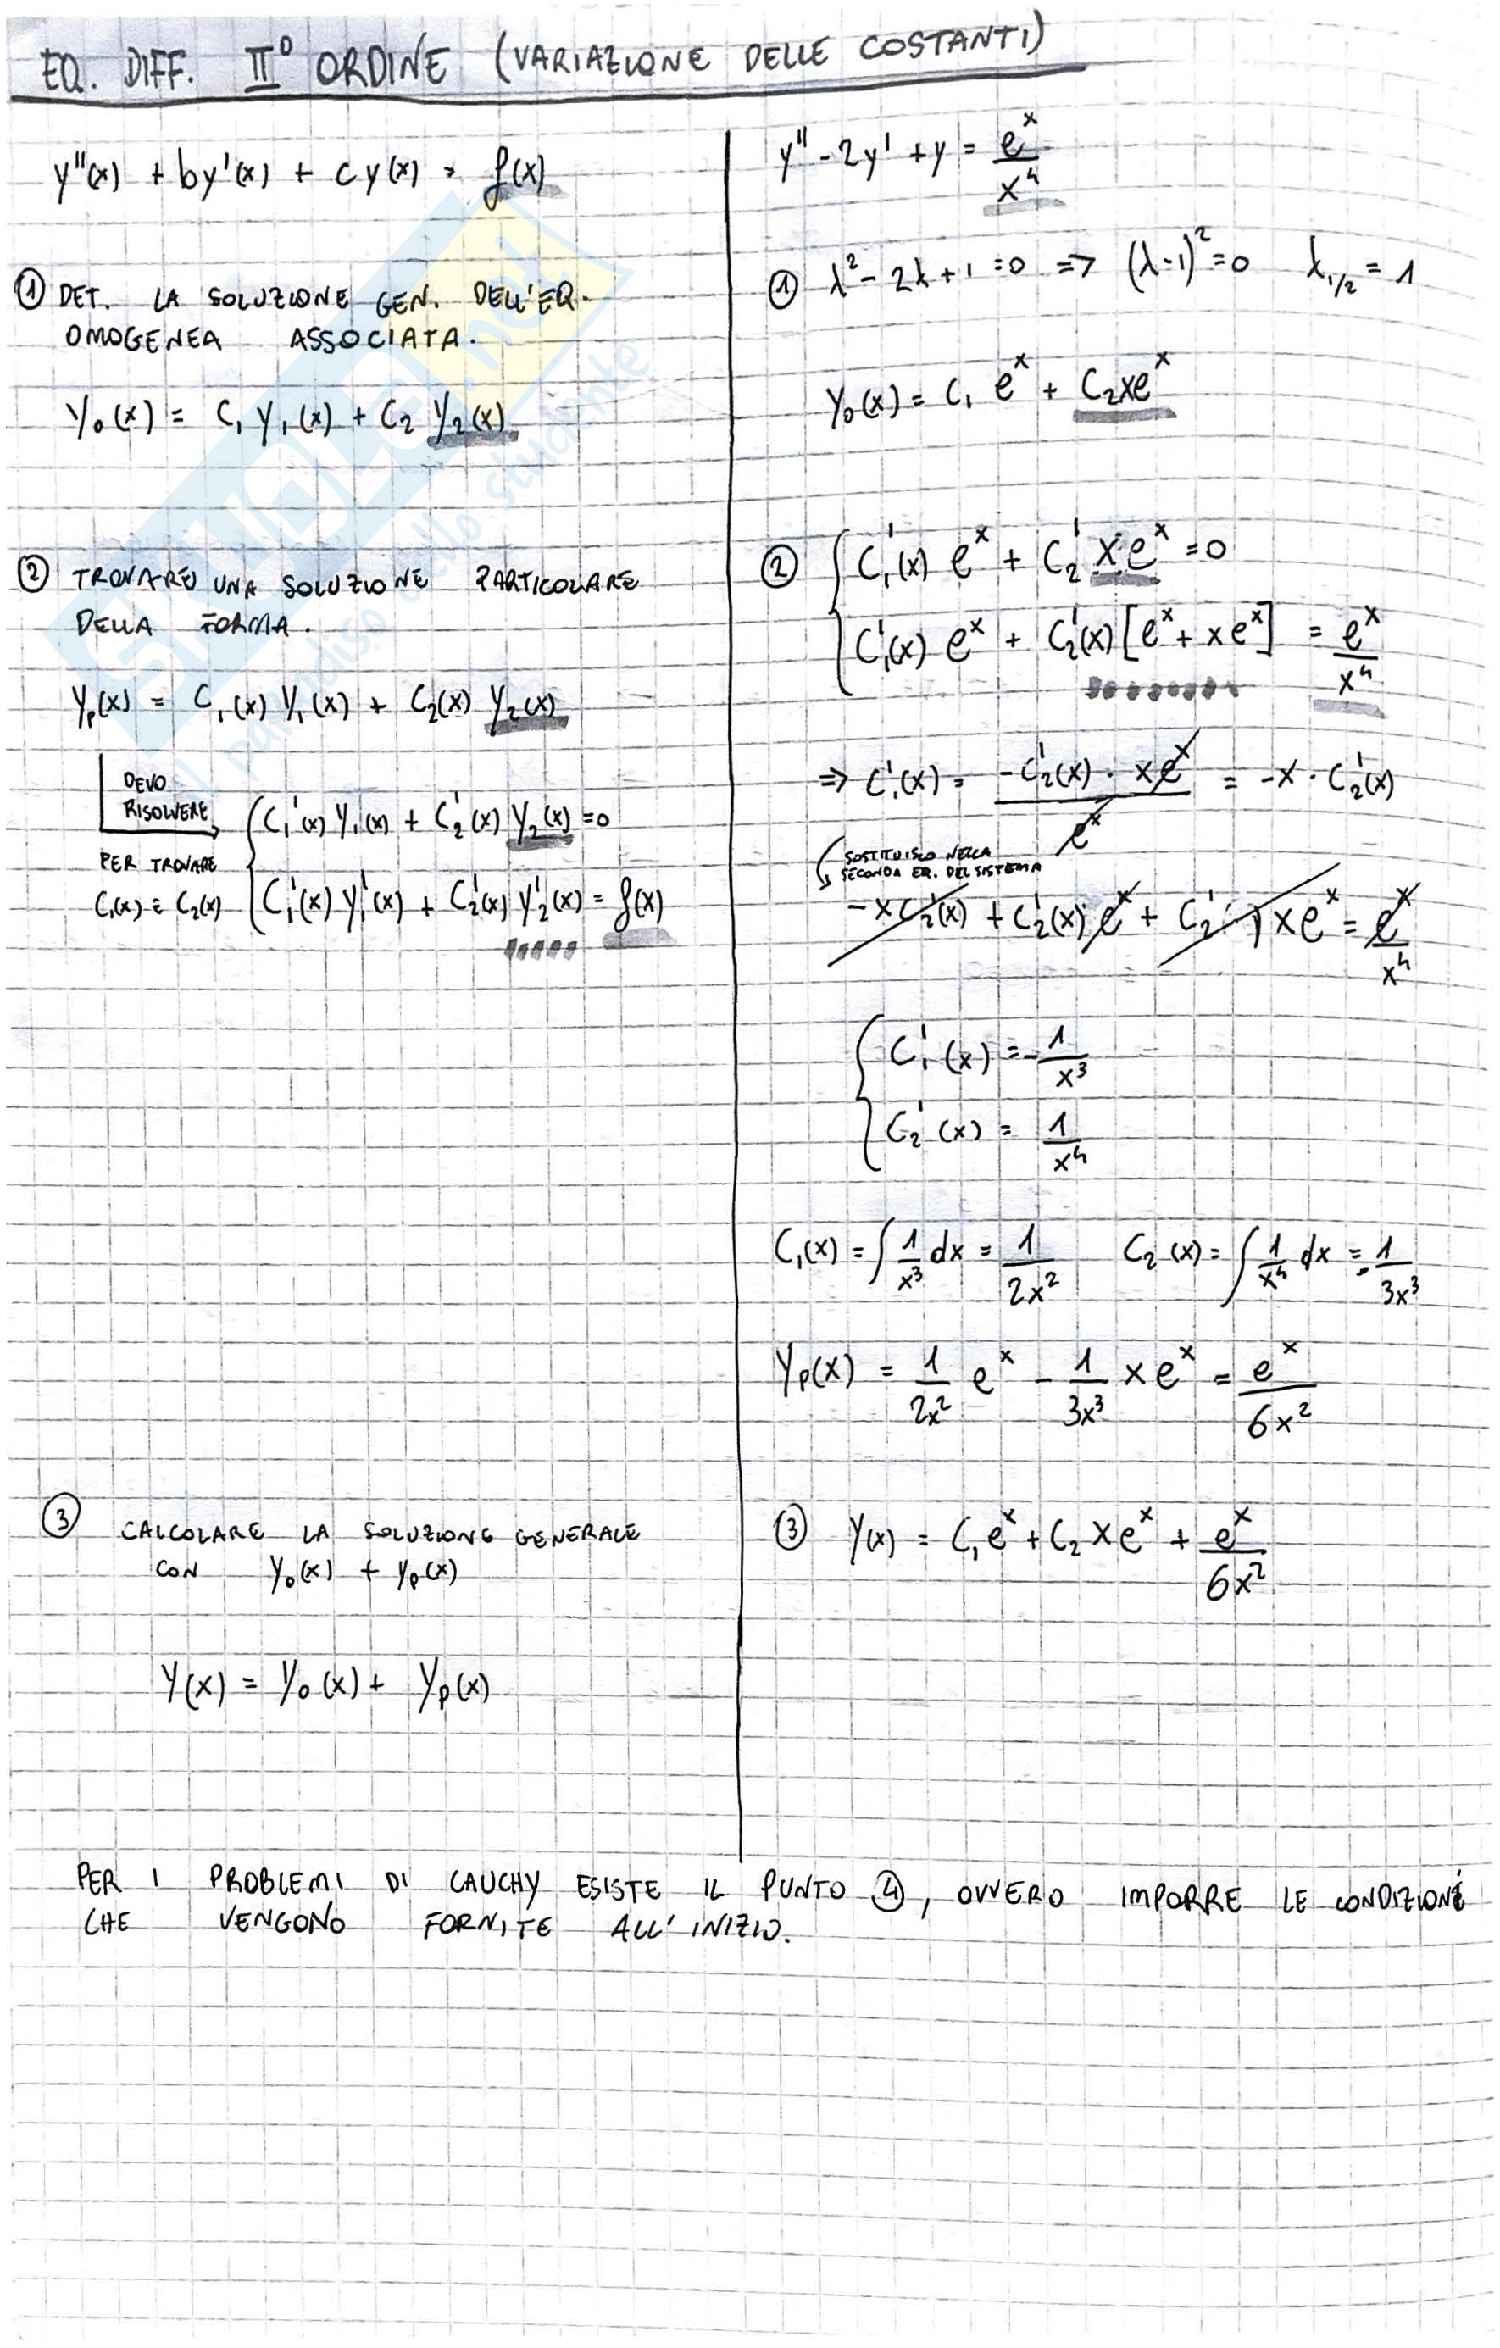 EQ. DIFF. II° ORDINE (VARIAZIONE DELLE COSTANTI)
y''(x) + by'(x) + cy(x) = f(x)
① DET. LA SOLUZIONE GEN. DELL'EQ.
OMOGENEA ASSOCIATA.
y₀(x) = C₁ y₁(x) + C₂ y₂(x)
② TROVARE UNA SOLUZIONE PARTICOLARE
DELLA FORMA.
yₚ(x) = C₁(x) y₁(x) + C₂(x) y₂(x)
DEVO
RISOLVERE
PER TROVARE
C₁(x) e C₂(x)
{ C₁'(x) y₁(x) + C₂'(x) y₂(x) = 0
C₁'(x) y₁'(x) + C₂'(x) y₂'(x) = f(x)
③ CALCOLARE LA SOLUZIONE GENERALE
CON y₀(x) + yₚ(x)
y(x) = y₀(x) + yₚ(x)
y'' - 2y' + y = e^x / x⁴
① λ² - 2λ + 1 = 0 => (λ-1)² = 0 λ₁/₂ = 1
y₀(x) = C₁ e^x + C₂xe^x
② { C₁'(x) e^x + C₂' xe^x = 0
C₁'(x) e^x + C₂'(x) [e^x + xe^x] = e^x / x⁴
=> C₁'(x) = -C₂'(x) · xe^x / e^x = -x · C₂'(x)
SOSTITUISCO NELLA
SECONDA EQ. DEL SISTEMA
-xC₂'(x) + C₂'(x) e^x + C₂' xe^x = e^x / x⁴
{ C₁'(x) = -1/x³
C₂'(x) = 1/x⁴
C₁(x) = ∫ 1/x³ dx = 1/2x² C₂(x) = ∫ 1/x⁴ dx = -1/3x³
yₚ(x) = 1/2x² e^x - 1/3x³ xe^x = e^x / 6x²
③ y(x) = C₁e^x + C₂xe^x + e^x / 6x²
PER I PROBLEMI DI CAUCHY ESISTE IL PUNTO ④, OVVERO IMPORRE LE CONDIZIONI
CHE VENGONO FORNITE ALL'INIZIO.